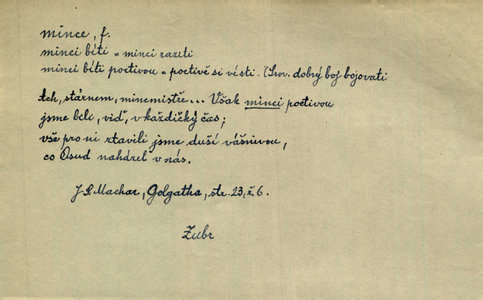 mince, f.
minci bíti = minci raziti
minci bíti poctivou = poctivě si vésti. (Srov. dobrý boj bojovati
Ach, stárnem, minemistře... Však minci poctivou
jsme bili, viď, v každičký čas;
vše pro ni stavili jsme duší vášnivou,
co Osud naházel v nás.
J.S. Machar, Golgatha, str. 23, ř. 6.
Zubr